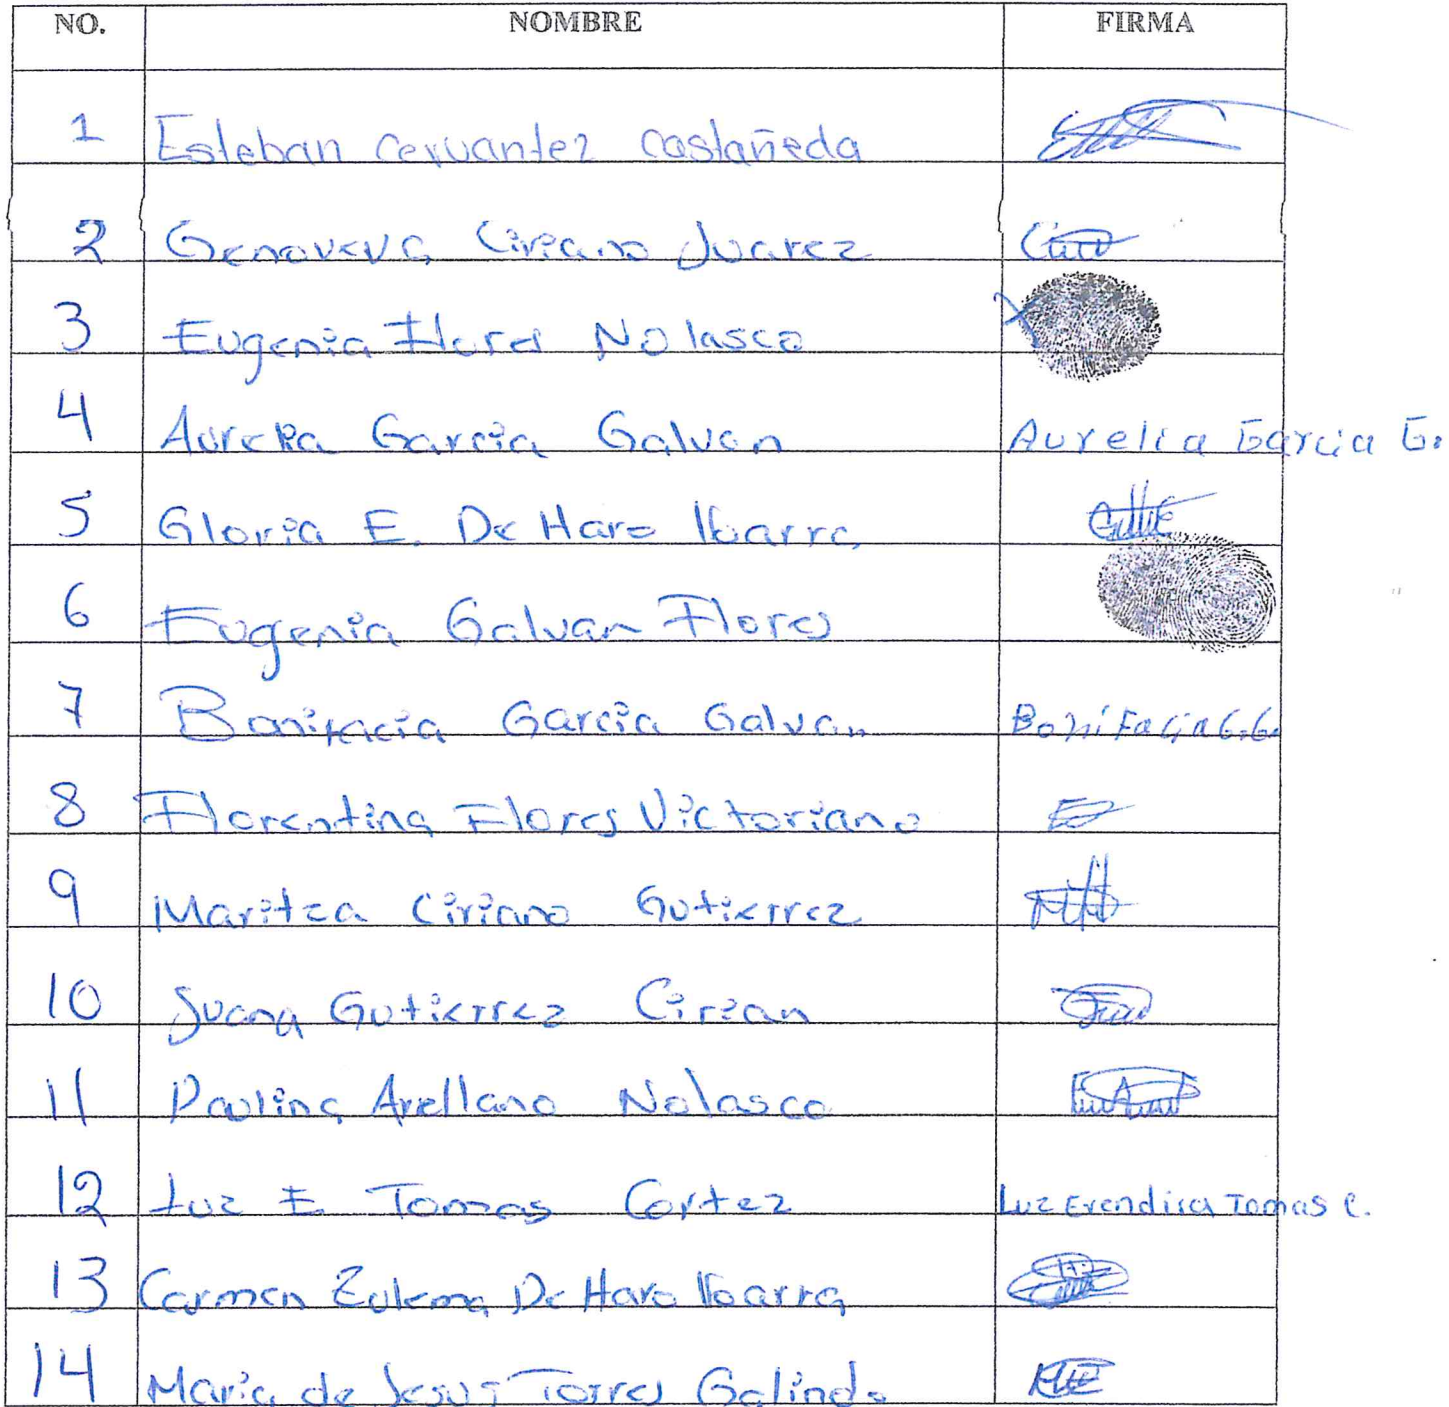 NO. NOMBRE FIRMA
1 Esteban Cervantez Castañeda
2 Genoveva Ciriano Juarez
3 Eugenia Flores Nolasco
4 Aurelia Garcia Galvan Aurelia Garcia G.
5 Gloria E. De Haro Ibarra
6 Eugenia Galvan Flores
7 Bonifacia Garcia Galvan Bonifacia G.G.
8 Florentina Flores Victoriano
9 Maritza Ciriano Gutierrez
10 Juana Gutierrez Cirian
11 Paulina Arellano Nolasco
12 Luz E Tomas Cortez Luz Erendira Tomas C.
13 Carmen Zulema De Haro Ibarra
14 Maria de Jesus Torres Galindo